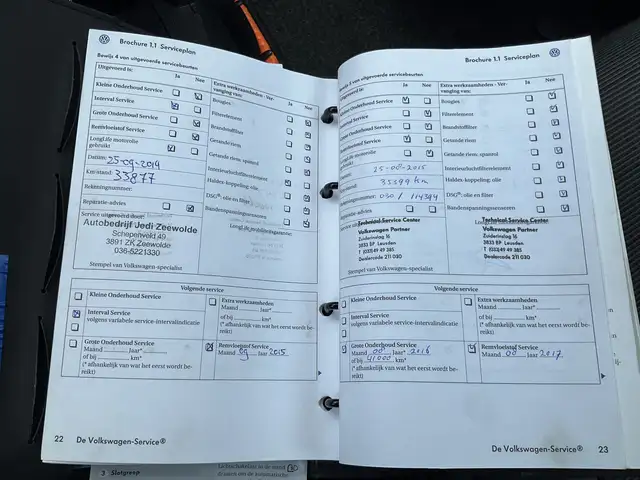 Brochure 1.1 Serviceplan
Bewijs 4 van uitgevoerde servicebeurten
Uitgevoerd is: Ja Nee
Kleine Onderhoud Service
Interval Service
Grote Onderhoud Service
Remvloeistof Service
LongLife motorolie
gebruikt
Datum: 25-09-2014
Km-stand: 33877
Rekeningnummer:
Reparatie-advies
Service uitgevoerd door:
Autobedrijf Jedi Zeewolde
Schepenveld 49
3891 ZK Zeewolde
036-5221330
Stempel van Volkswagen-specialist
Extra werkzaamheden - Ver-
vanging van: Ja Nee
Bougies
Filterelement
Brandstoffilter
Getande riem
Getande riem, spanrol
Interieurluchtfilterelement
Haldex-koppeling: olie
DSG®: olie en filter
Bandenspanningssensoren
Volgende service
Kleine Onderhoud Service
Interval Service
volgens variabele service-intervalindicatie
Grote Onderhoud Service
Maand Jaar*
of bij km*
(* afhankelijk van wat het eerst wordt be-
reikt)
Extra werkzaamheden
Maand Jaar*
of bij km*
(* afhankelijk van wat het eerst wordt be-
reikt)
Remvloeistof Service
Maand 09 Jaar 2015
22 De Volkswagen-Service®
3 Slotgreep
Brochure 1.1 Serviceplan
Bewijs 5 van uitgevoerde servicebeurten
Ja Nee
Kleine Onderhoud Service
25-08-2015
35599 km
Technical Service Center
Volkswagen Partner
Zuiderinslag 16
3833 BP Leusden
T (033)49 49 385
Dealercode 211 030
Stempel van Volkswagen-specialist
Extra werkzaamheden - Ver-
vanging van: Ja Nee
Bougies
Filterelement
Brandstoffilter
Getande riem
Getande riem, spanrol
Interieurluchtfilterelement
Haldex-koppeling: olie
DSG®: olie en filter
Bandenspanningssensoren
Technical Service Center
Volkswagen Partner
Zuiderinslag 16
3833 BP Leusden
T (033)49 49 385
Dealercode 211 030
Volgende service
Kleine Onderhoud Service
Interval Service
volgens variabele service-intervalindicatie
Grote Onderhoud Service
Maand Jaar* 2016
of bij 41000 km*
(* afhankelijk van wat het eerst wordt be-
reikt)
Extra werkzaamheden
Maand Jaar*
of bij km*
(* afhankelijk van wat het eerst wordt be-
reikt)
Remvloeistof Service
Maand Jaar 2017
De Volkswagen-Service® 23